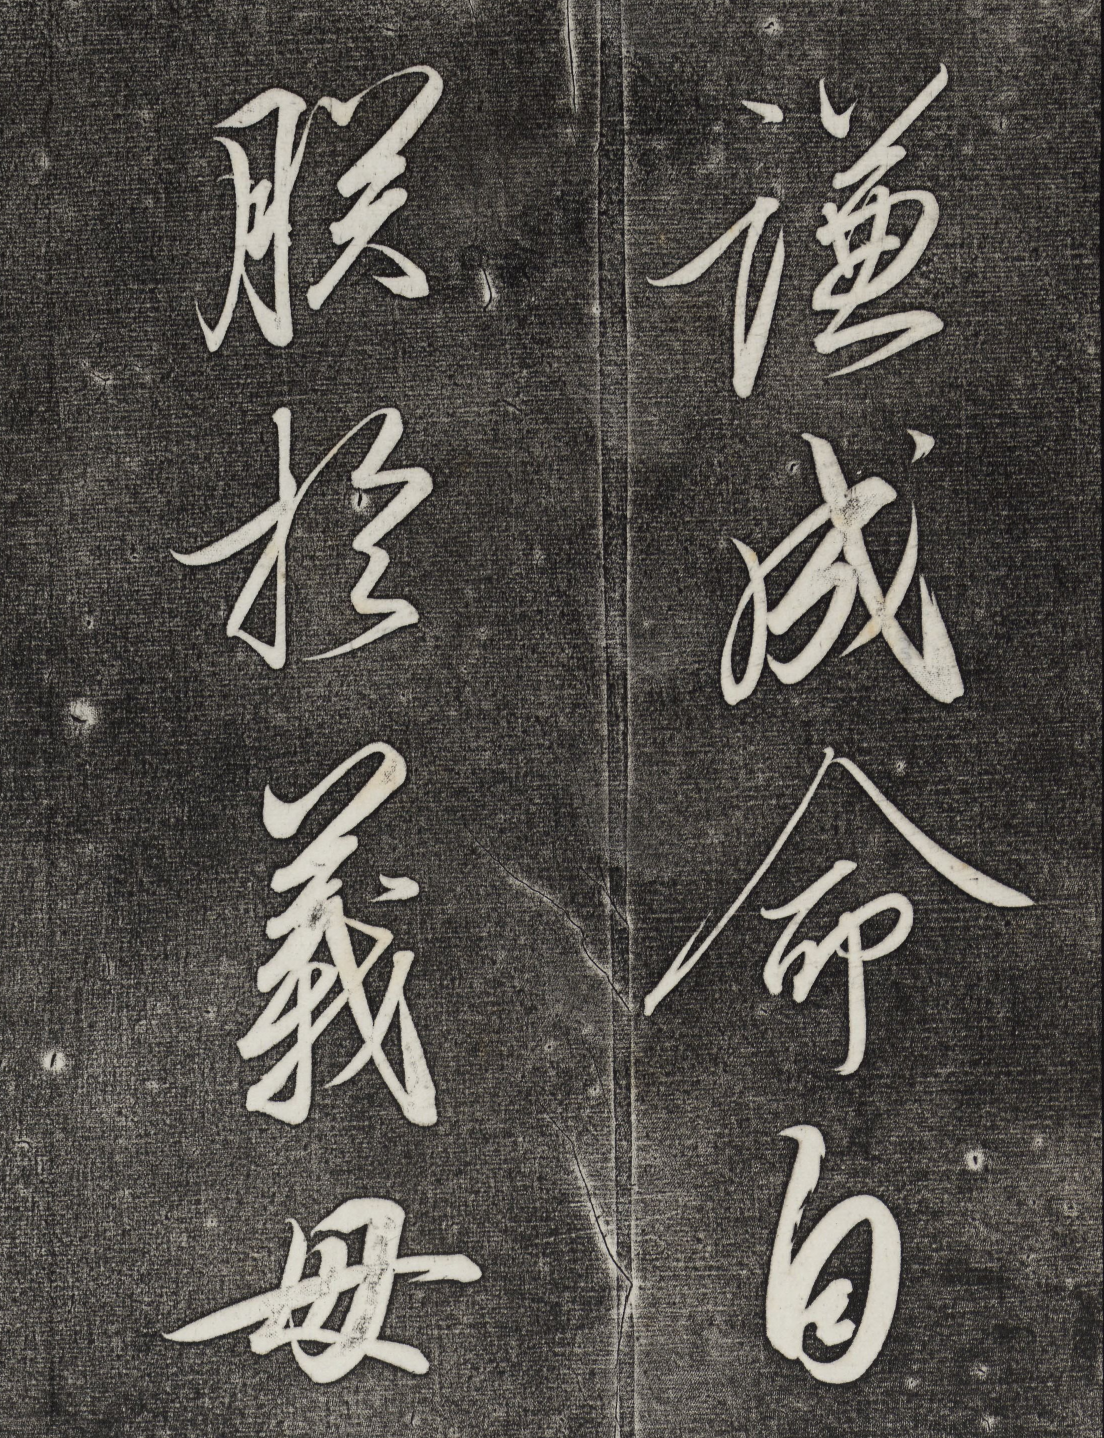 謹成命自
朕於義毋